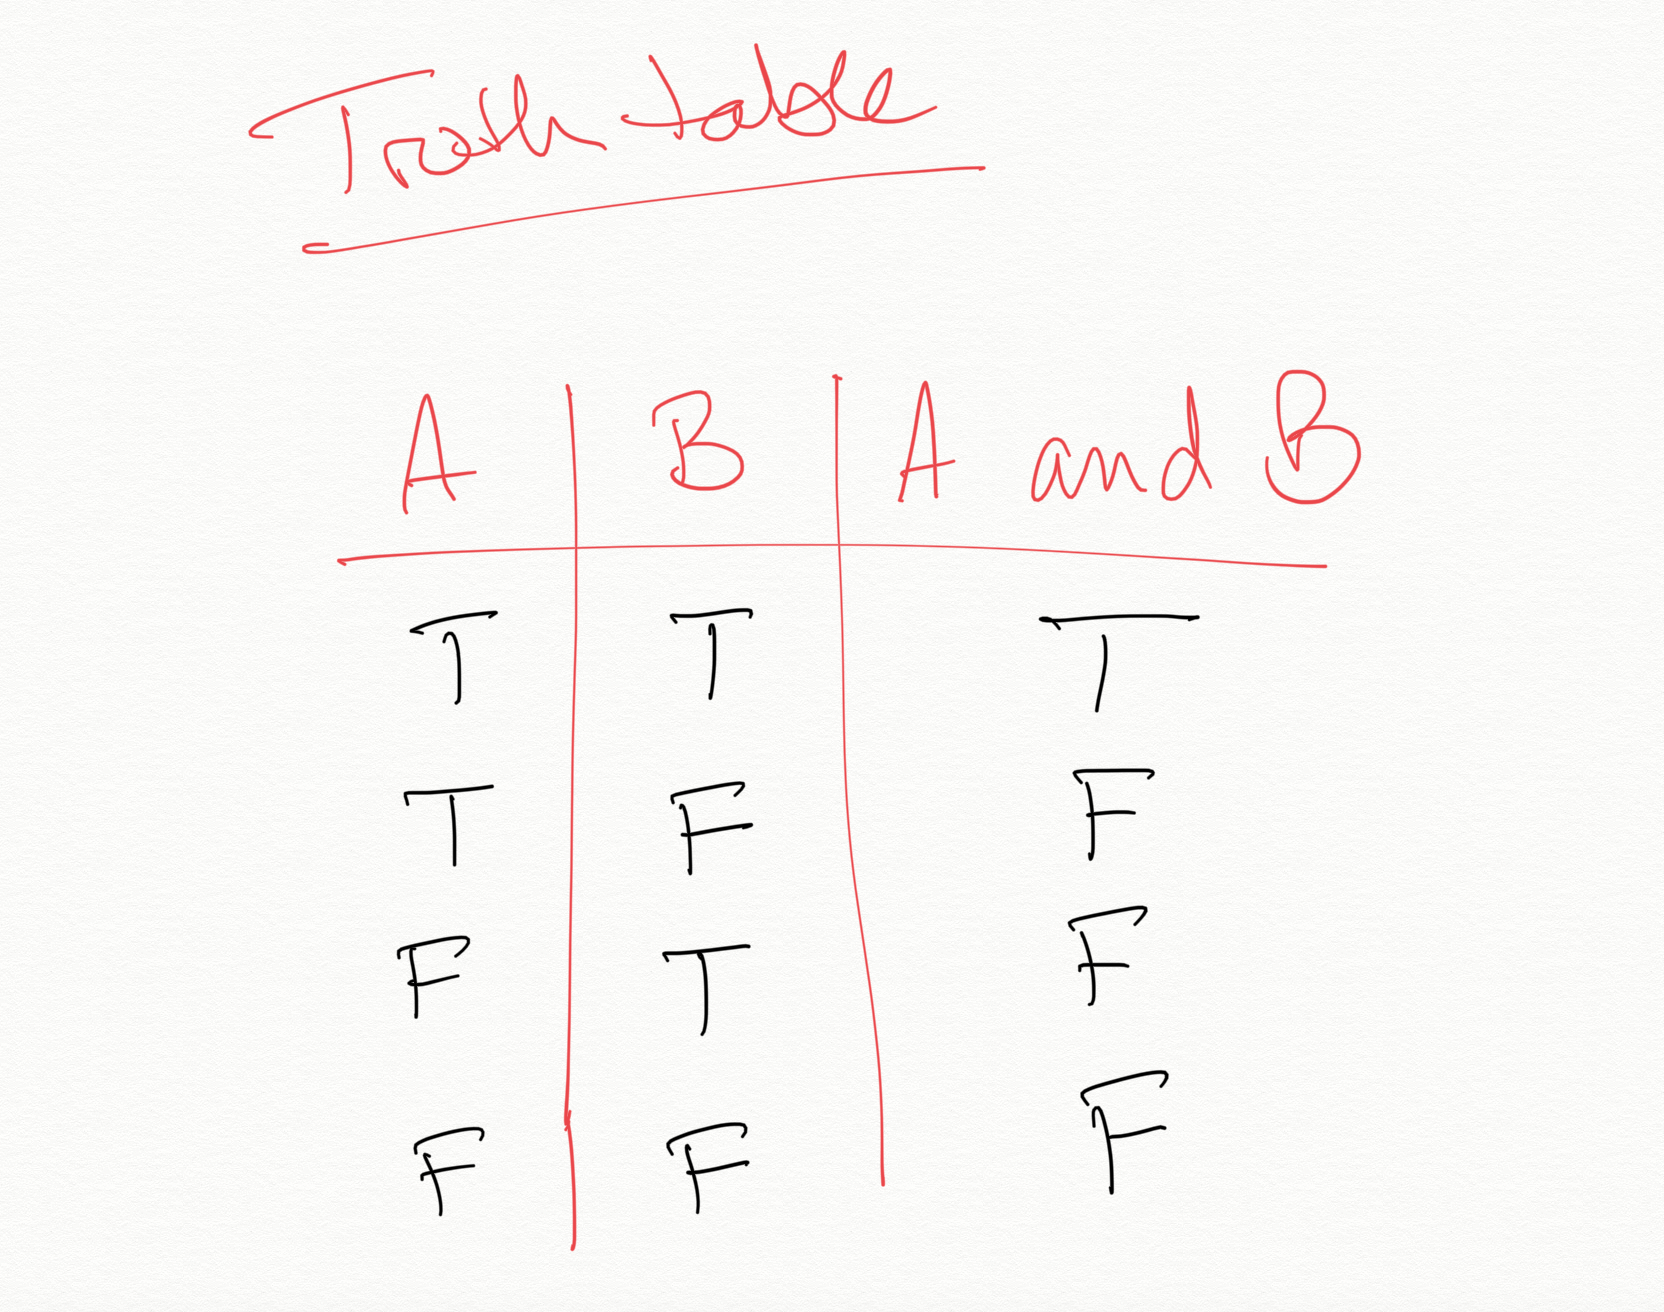 Truth table
A B A and B
T T T
T F F
F T F
F F F